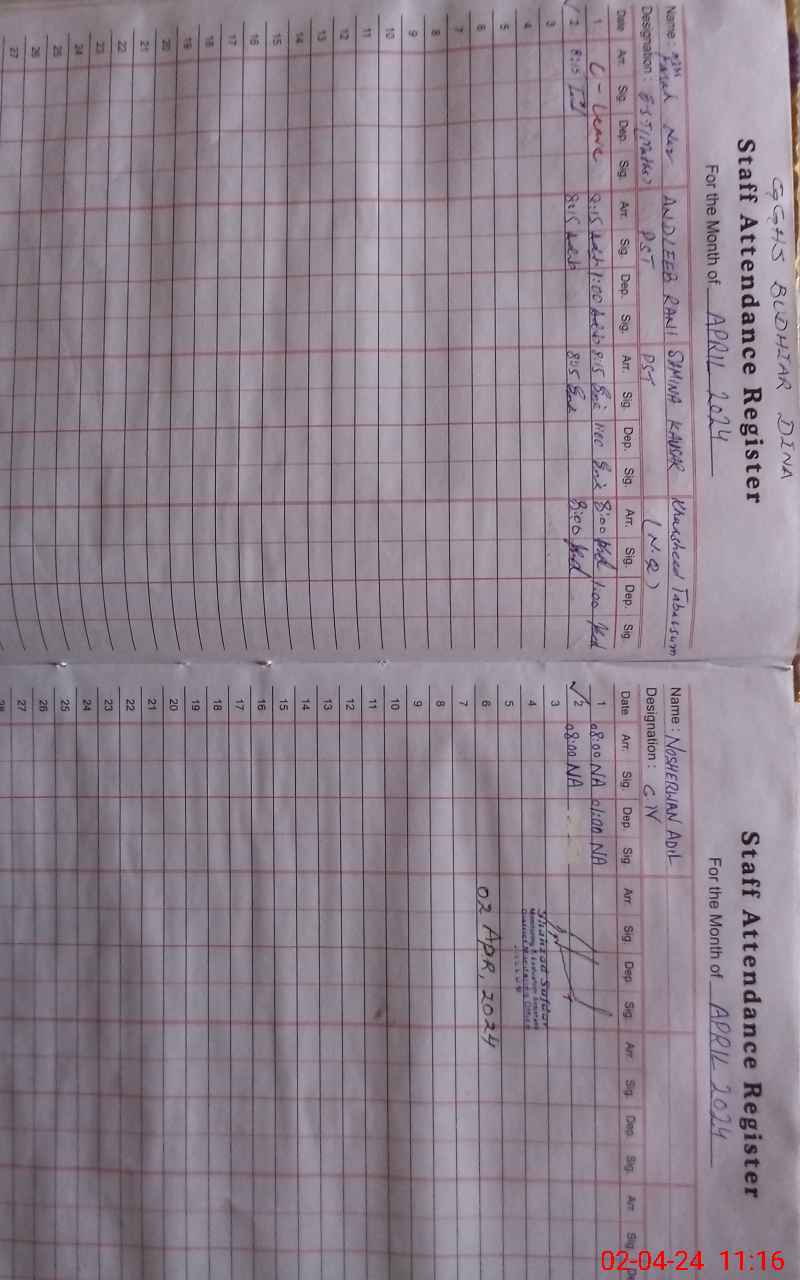 GGHS BUDHIAR DINA
Staff Attendance Register
For the Month of APRIL 2024
Name : ANDLEEB RANI SAMINA KAUSAR Khursheed Tabassum
Designation : PST PST (N.Q)
Date Arr. Sig. Dep. Sig. Arr. Sig. Dep. Sig. Arr. Sig. Dep. Sig. Arr. Sig. Dep. Sig.
1 C-Leave 8:15 1:00 8:15 1:00 8:00 1:00
2 8:15 8:15 8:15 8:00
3
4
5
6
7
8
9
10
11
12
13
14
15
16
17
18
19
20
21
22
23
24
25
26
27
Staff Attendance Register
For the Month of APRIL 2024
Name : NOSHERWAN ADIL
Designation : C IV
Date Arr. Sig. Dep. Sig. Arr. Sig. Dep. Sig. Arr. Sig. Dep. Sig. Arr. Sig.
1 08:00 NA 01:00 NA
2 08:00 NA
3
4 Shahzad Safdar
5
6 02 APR, 2024
7
8
9
10
11
12
13
14
15
16
17
18
19
20
21
22
23
24
25
26
27
28
02-04-24 11:16